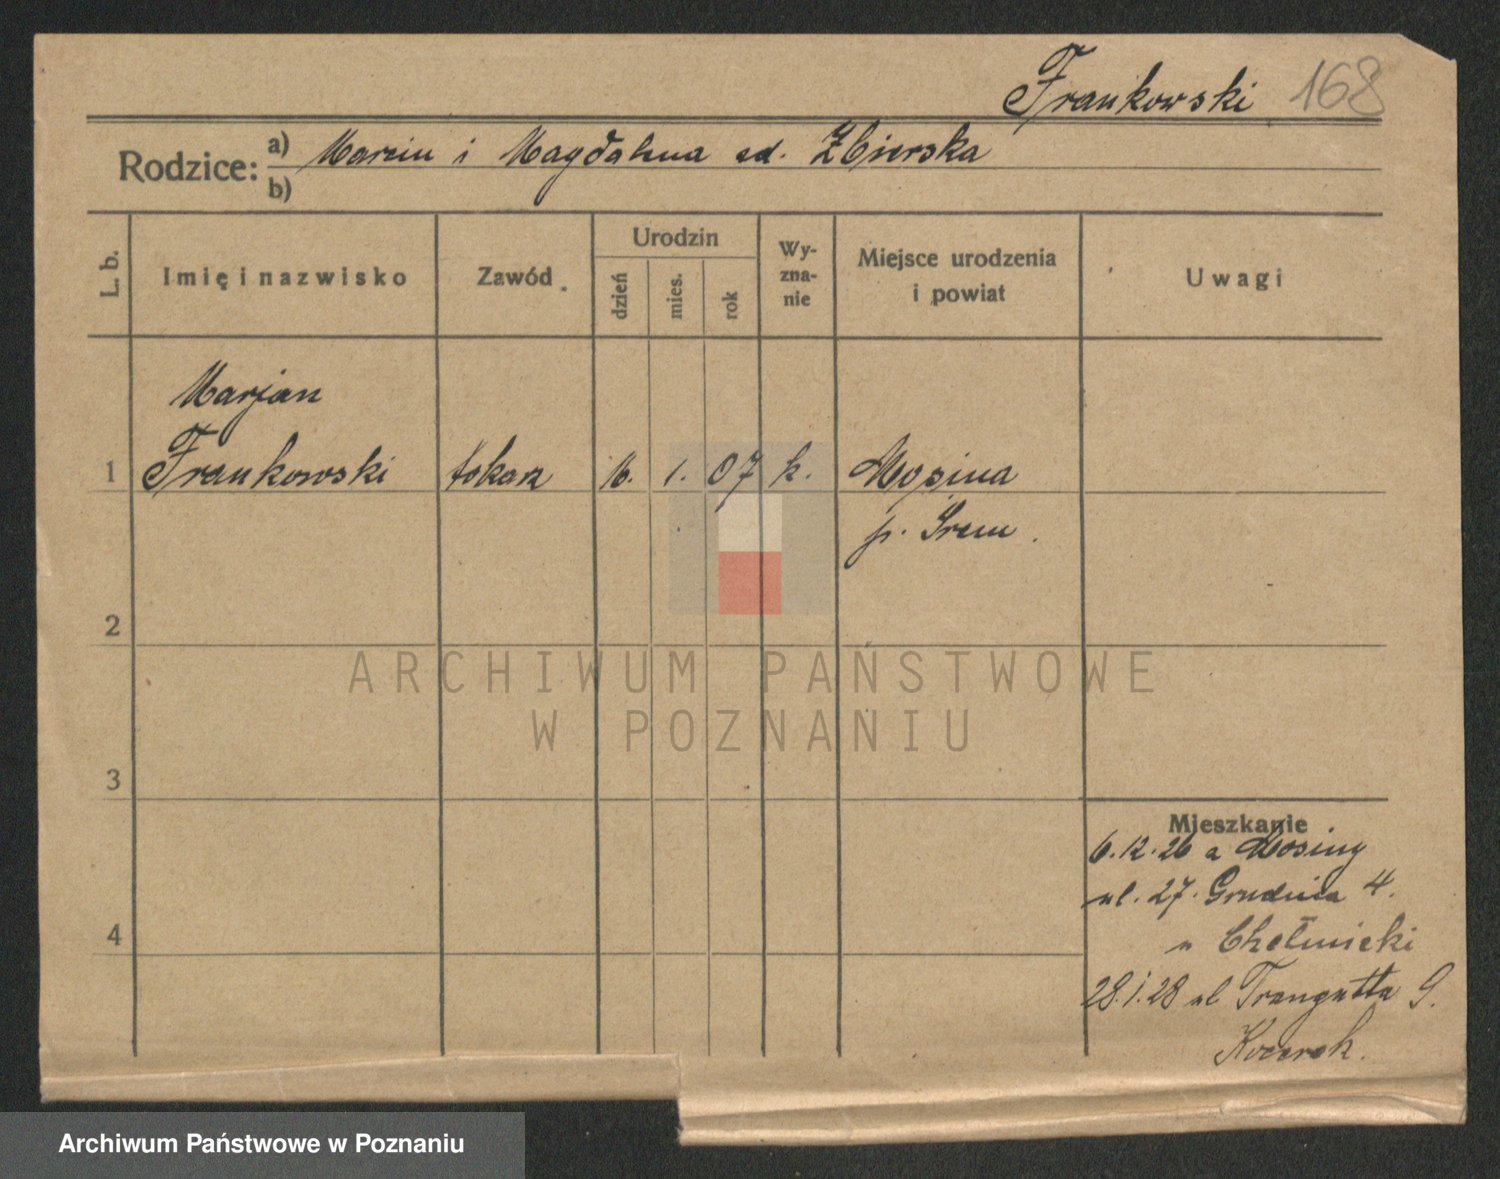 Frankowski 168
Rodzice: a) Marcin i Magdalena zd. Zbierska
b)
L. b. Imię i nazwisko Zawód Urodzin dzień mies. rok Wy-zna-nie Miejsce urodzenia i powiat Uwagi
Marjan
1 Frankowski tokarz 16. 1. 07 k. Mosina
p. Śrem.
2
ARCHIWUM PAŃSTWOWE
W POZNANIU
3
Mieszkanie
6.12.26 z Mosiny
ul. 27. Grudnia 4.
4
u Chełmicki
28.1.28 ul Traugutta 9.
Archiwum Państwowe w Poznaniu